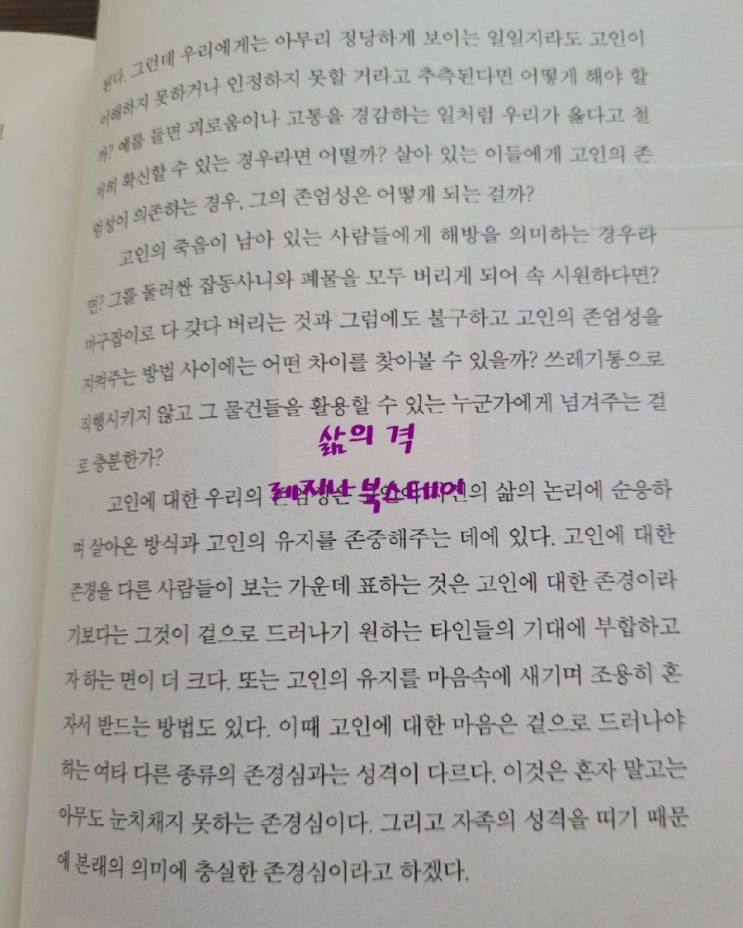 된다. 그런데 우리에게는 아무리 정당하게 보이는 일일지라도 고인이
이해하지 못하거나 인정하지 못할 거라고 추측된다면 어떻게 해야 할
까? 예를 들면 괴로움이나 고통을 경감하는 일처럼 우리가 옳다고 철
저히 확신할 수 있는 경우라면 어떨까? 살아 있는 이들에게 고인의 존
엄성이 의존하는 경우, 그의 존엄성은 어떻게 되는 걸까?
고인의 죽음이 남아 있는 사람들에게 해방을 의미하는 경우라
면? 그를 둘러싼 잡동사니와 폐물을 모두 버리게 되어 속 시원하다면?
마구잡이로 다 갖다 버리는 것과 그럼에도 불구하고 고인의 존엄성을
지켜주는 방법 사이에는 어떤 차이를 찾아볼 수 있을까? 쓰레기통으로
직행시키지 않고 그 물건들을 활용할 수 있는 누군가에게 넘겨주는 걸
삶의 격
로 충분한가?
레지나 북스테이
고인에 대한 우리의 삶의 논리에 순응하
며 살아온 방식과 고인의 유지를 존중해주는 데에 있다. 고인에 대한
존경을 다른 사람들이 보는 가운데 표하는 것은 고인에 대한 존경이라
기보다는 그것이 겉으로 드러나기 원하는 타인들의 기대에 부합하고
자 하는 면이 더 크다. 또는 고인의 유지를 마음속에 새기며 조용히 혼
자서 받드는 방법도 있다. 이때 고인에 대한 마음은 겉으로 드러나야
하는 여타 다른 종류의 존경심과는 성격이 다르다. 이것은 혼자 말고는
아무도 눈치채지 못하는 존경심이다. 그리고 자족의 성격을 띠기 때문
에 본래의 의미에 충실한 존경심이라고 하겠다.